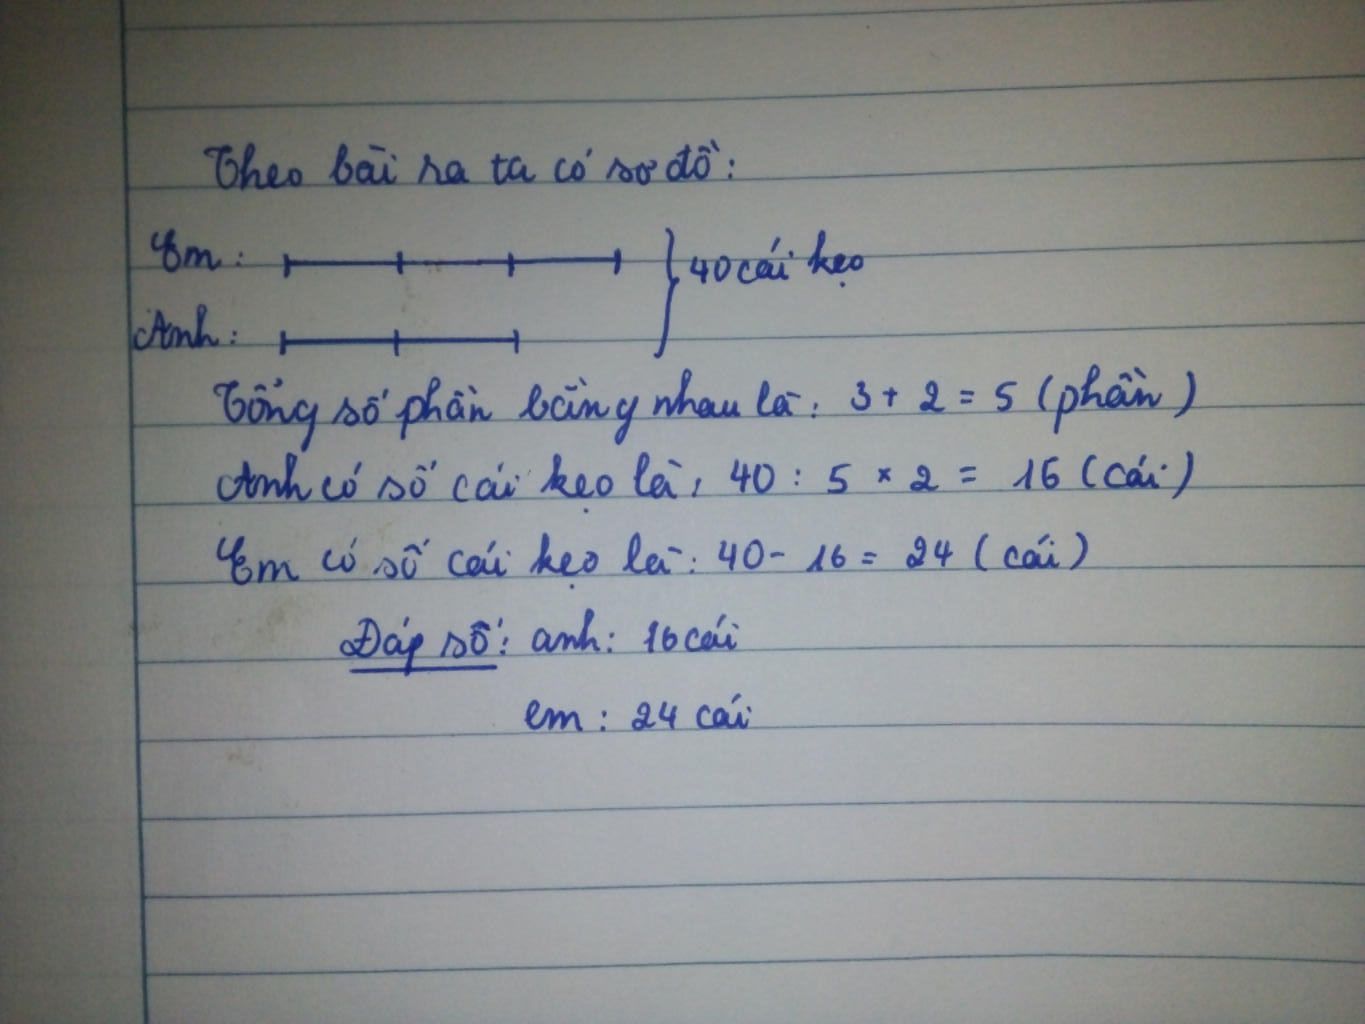 Theo bài ra ta có sơ đồ:
Em:
40 cái kẹo
Anh:
Tổng số phần bằng nhau là: 3 + 2 = 5 (phần)
Anh có số cái kẹo là: 40 : 5 × 2 = 16 (cái)
Em có số cái kẹo là: 40 - 16 = 24 (cái)
Đáp số: anh: 16 cái
em: 24 cái